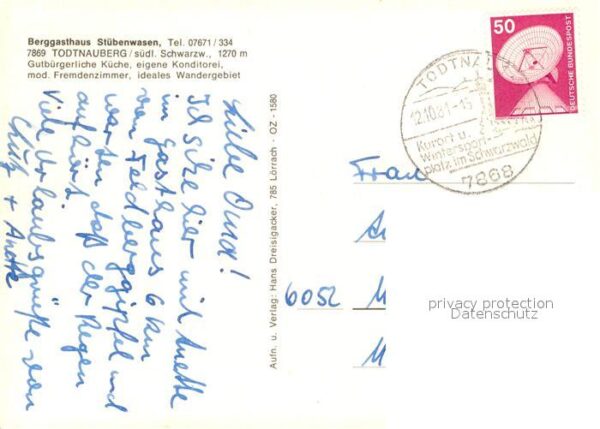 Berggasthaus Stübenwasen, Tel. 07671/334
7869 TODTNAUBERG/südl. Schwarzw., 1270 m
Gutbürgerliche Küche, eigene Konditorei,
mod. Fremdenzimmer, ideales Wandergebiet
Liebe Oma!
Ich sitze hier mit Anette
im Gasthaus 6 km
von Feldberggipfel und
warten daß der Regen
aufhört.
Viele Urlaubsgrüße von
+ Anette
Aufn. u. Verlag: Hans Dreisigacker, 785 Lörrach · OZ - 1580
50
DEUTSCHE BUNDESPOST
TODTNAU
12.10.81-15
Kurort u.
Wintersport-
platz im Schwarzwald
7868
Frau
6052 M
M
privacy protection
Datenschutz